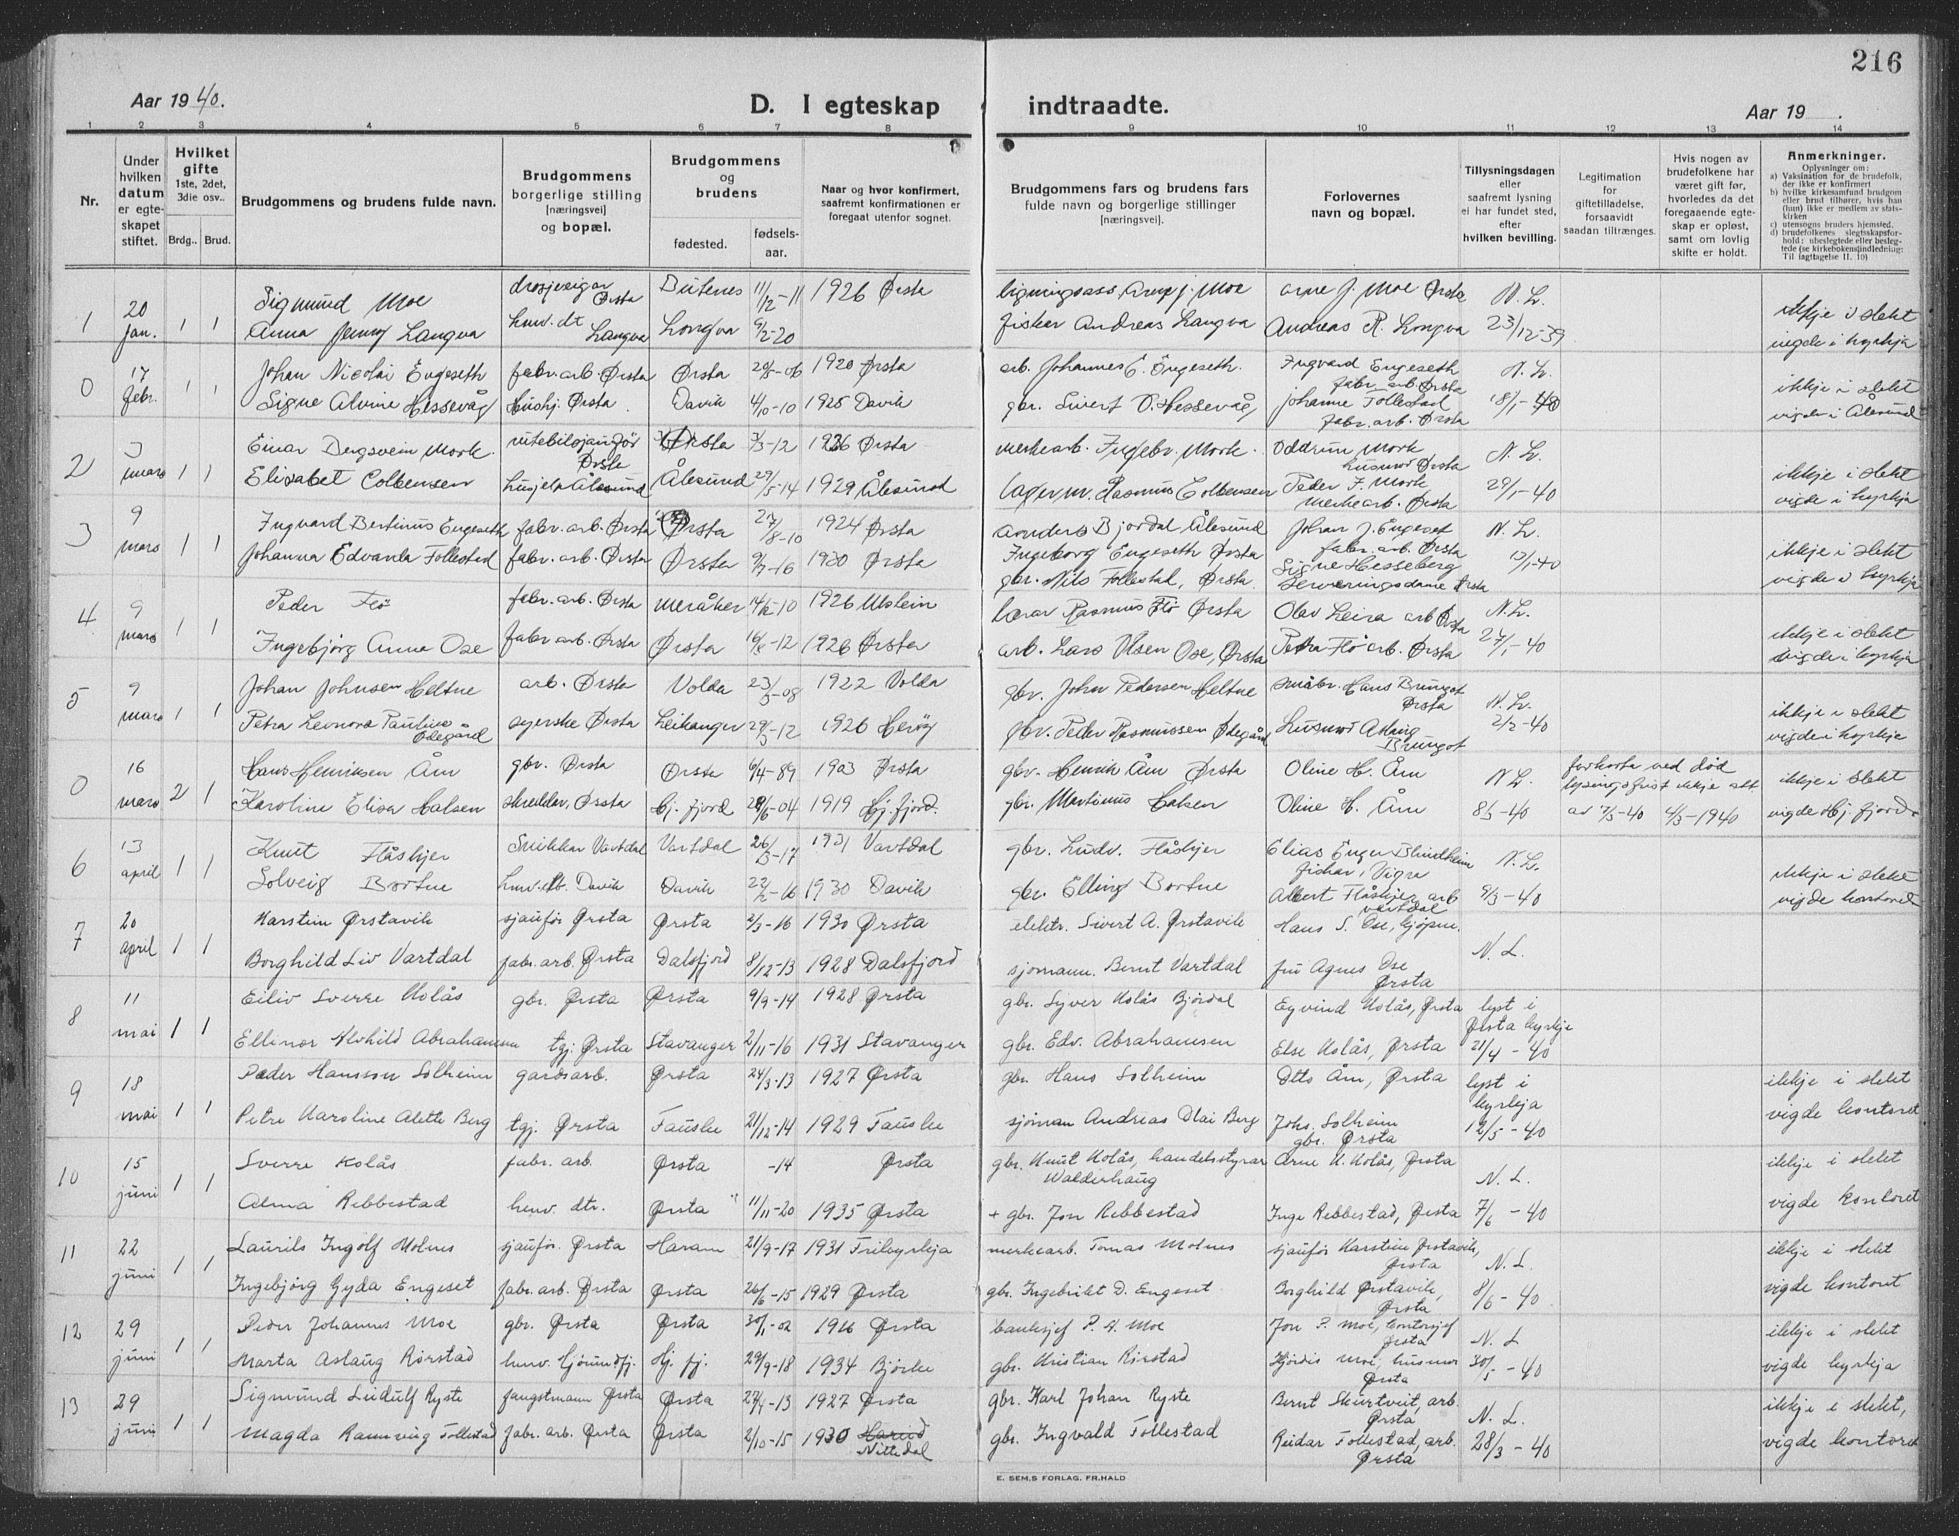 216
Aar 1940.
D. I egteskap indtraadte.
Aar 19 .
1 2 3 4 5 6 7 8 9 10 11 12 13 14
Nr.
Under hvilken datum er egteskapet stiftet.
Hvilket gifte 1ste, 2det, 3die osv..
Brdg.. Brud.
Brudgommens og brudens fulde navn.
Brudgommens borgerlige stilling [næringsvei] og bopæl.
Brudgommens og brudens
fødested. fødselsaar.
Naar og hvor konfirmert, saafremt konfirmationen er foregaat utenfor sognet.
Brudgommens fars og brudens fars fulde navn og borgerlige stillinger [næringsvei].
Forlovernes navn og bopæl.
Tillysningsdagen eller saafremt lysning ei har fundet sted, efter hvilken bevilling.
Legitimation for giftetilladelse, forsaavidt saadan tiltrænges.
Hvis nogen av brudefolkene har været gift før, hvorledes da det foregaaende egteskap er opløst, samt om lovlig skifte er holdt.
Anmerkninger.
Oplysninger om:
a) Vaksination for de brudefolk, der ikke er konfirmert
b) hvilke kirkesamfund brudgom eller brud tilhører, hvis han (hun) ikke er medlem av statskirken
c) utensogns bruders hjemsted.
d) brudefolkenes slegtsskapsforhold: ubeslegtede eller beslegtede (se kirkebokens indledning: Til iagttagelse II. 10)
1 20 Jan. 1 1 Sigmund Moe drosjeeigar Ørsta 11/12-11 1926 Ørsta Arne J. Moe Arne J. Moe Ørsta N. L.
Anna Jenny Langva heimv. dt. Langva Longva 9/2-20 fiskar Andreas Langva Andreas R. Longva 23/12-39 ikkje i slekt vigde i kyrkja
0 17 febr. 1 1 Johan Nicolai Engeseth fabr. arb. Ørsta Ørsta 1920 Ørsta arb. Johannes E. Engeseth. Ingvard Engeseth fabr. arb. Ørsta N. L.
Signe Alvine Hessevåg Hushj. Ørsta Davik 4/10-10 1925 Davik gbr. Sivert O. Hessevåg Johanne Follestad fabr. arb. Ørsta 18/1-40 ikkje i slekt vigde i Ålesund
2 3 mars 1 1 Einar Bergsvein Mork. rutebilsjåufør Ørsta Ørsta 3/3-12 1926 Ørsta merkearb. Ingebr. Mork. Oddrun Mork husmor Ørsta N. L.
Elisabet Colbensen hushjelp Ålesund Ålesund 29/5-14 1929 Ålesund lagerm. Rasmus Colbensen Peder J. Mork merkearb. Ørsta 29/1-40 ikkje i slekt vigde i kyrkja
3 9 mars 1 1 Ingvard Bertinus Engeseth fabr. arb. Ørsta Ørsta 27/8-10 1924 Ørsta Anders Bjordal Ålesund Ingeborg Engeseth Ørsta Johan J. Engeset fabr. arb. Ørsta N. L.
Johanna Edvarda Follestad fabr. arb. Ørsta Ørsta 9/7-16 1930 Ørsta gbr. Nils Follestad, Ørsta Signe Hesseberg Serveringsdame Ørsta 13/1-40 ikkje i slekt vigde i kyrkja
4 9 mars 1 1 Peder Flø fabr. arb. Ørsta Meråker 1926 Ulstein lærar Rasmus Flø Ørsta Olav Leira arb Ørsta N. L.
Ingebjørg Anna Ose fabr arb. Ørsta Ørsta 1926 Ørsta arb. Lars Olsen Ose, Ørsta Petra Flø arb. Ørsta 27/1-40 ikkje i slekt vigde i kyrkja
5 9 mars 1 1 Johan Johnsen Heltne arb. Ørsta Volda 23/5-08 1922 Volda gbr. John Pedersen Heltne småbr. Hans Brungot Ørsta N. L.
Petra Leonora Pauline Ødegård syerske Ørsta Leikanger 29/3-12 1926 Herøy gbr. Peder Rasmussen Ødegård husmor Aslaug Brungot 2/2-40 ikkje i slekt vigde i kyrkje
0 16 mars 2 1 Hans Henriksen Åm gbr. Ørsta Ørsta 6/4-89 1903 Ørsta gbr. Henrik Åm Ørsta Oline H. Åm N L. forkorta ved død
Karoline Elisa Halsen skredder, Ørsta Hj. fjord 29/6-04 1919 Hj. fjord. gbr. Martinus Halsen Oline H. Åm 8/3-40 lysingsfrist ikkje att. av 7/3-40 4/3-1940 ikkje i slekt vigde Hj. fjord.
6 13 april 1 1 Knut Flåskjer Snikkar Vartdal Vartdal 26/3-17 1931 Vartdal gbr. Ludv. Flåskjer Elias Enger Blindheim fiskar, Vigra N. L.
Solveig Bortne heimv. dt. Davik Davik 22/2-16 1930 Davik gbr. Elling Bortne Albert Flåskjer arb Vartdal 9/3-40 ikkje i slekt vigde kontoret
7 20 april 1 1 Karstein Ørstavik sjåufør Ørsta Ørsta 2/7-16 1930 Ørsta elektr. Sivert A. Ørstavik Hans S. Ose, kjøpm. N. L.
Borghild Liv Vartdal fabr. arb. Ørsta Dalsfjord 8/12-13 1928 Dalsfjord sjømann. Bernt Vartdal fru Agnes Ose Ørsta
8 11 mai 1 1 Eiliv Sverre Kolås gbr. Ørsta Ørsta 9/9-14 1928 Ørsta gbr. Syver Kolås Bjørdal Eyvind Kolås, Ørsta lyst i Ørsta kyrkje
Ellinor Alvhild Abrahamsen tgj. Ørsta Stavanger 2/11-16 1931 Stavanger gbr. Edv. Abrahamsen Else Kolås, Ørsta 21/4-40
9 18 mai 1 1 Peder Hansson Solheim gardsarb. Ørsta 24/3-13 1927 Ørsta gbr. Hans Solheim Otto Åm, Ørsta lyst i kyrkja
Petra Karoline Alette Berg tgj. Ørsta Fauske 21/12-14 1929 Fauske sjöman Andreas Olai Berg Johs. Solheim gbr. Ørsta 12/5-40 ikkje i slekt vigde kontoret
10 15 juni 1 1 Sverre Kolås fabr. arb. Ørsta -14 Ørsta gbr. Knut Kolås, handelsstyrar Walderhaug Arne K. Kolås, Ørsta N. L.
Alma Rebbestad heimv dtr. Ørsta 11/11-20 1935 Ørsta + gbr. Jon Rebbestad Inge Rebbestad, Ørsta 7/6-40 ikkje i slekt vigde kontoret
11 22 juni 1 1 Laurits Ingolf Molnes sjåufør. Ørsta Haram 21/9-17 1931 Frikyrkja merkearb. Tomas Molnes sjåufør Karstein Ørstavik, Ørsta N. L.
Ingebjørg Gyda Engeset fabr. arb. Ørsta Ørsta 26/6-15 1929 Ørsta gbr. Ingebrikt D. Engeset. Borghild Ørstavik, Ørsta 8/6-40 ikkje i slekt vigde kontoret
12 29 juni 1 1 Peder Johannes Moe gbr. Ørsta Ørsta 30/1-02 1916 Ørsta banksjef P. A. Moe Jon P. Moe, kontorsjef Ørsta N. L
Marta Aslaug Rørstad heimv. Hjørundfj. Hj. fj. 29/9-18 1934 Bjørke gbr. Kristian Rørstad Hjørdis Moe, husmor Ørsta 30/5-40 ikkje i slekt vigde kyrkja
13 29 juni 1 1 Sigmund Leidulf Ryste fangstmann Ørsta Ørsta 1927 Ørsta gbr. Karl Johan Ryste Bernt Skurtveit, arb. Ørsta N. L.
Magda Rannveig Follestad fabr. arb. Ørsta Ørsta 2/10-15 1930 Nittedal gbr. Ingvald Follestad Reidar Follestad, arb. Ørsta 28/3-40 ikkje i slekt, vigde kontoret
E. SEM,S FORLAG, FR.HALD